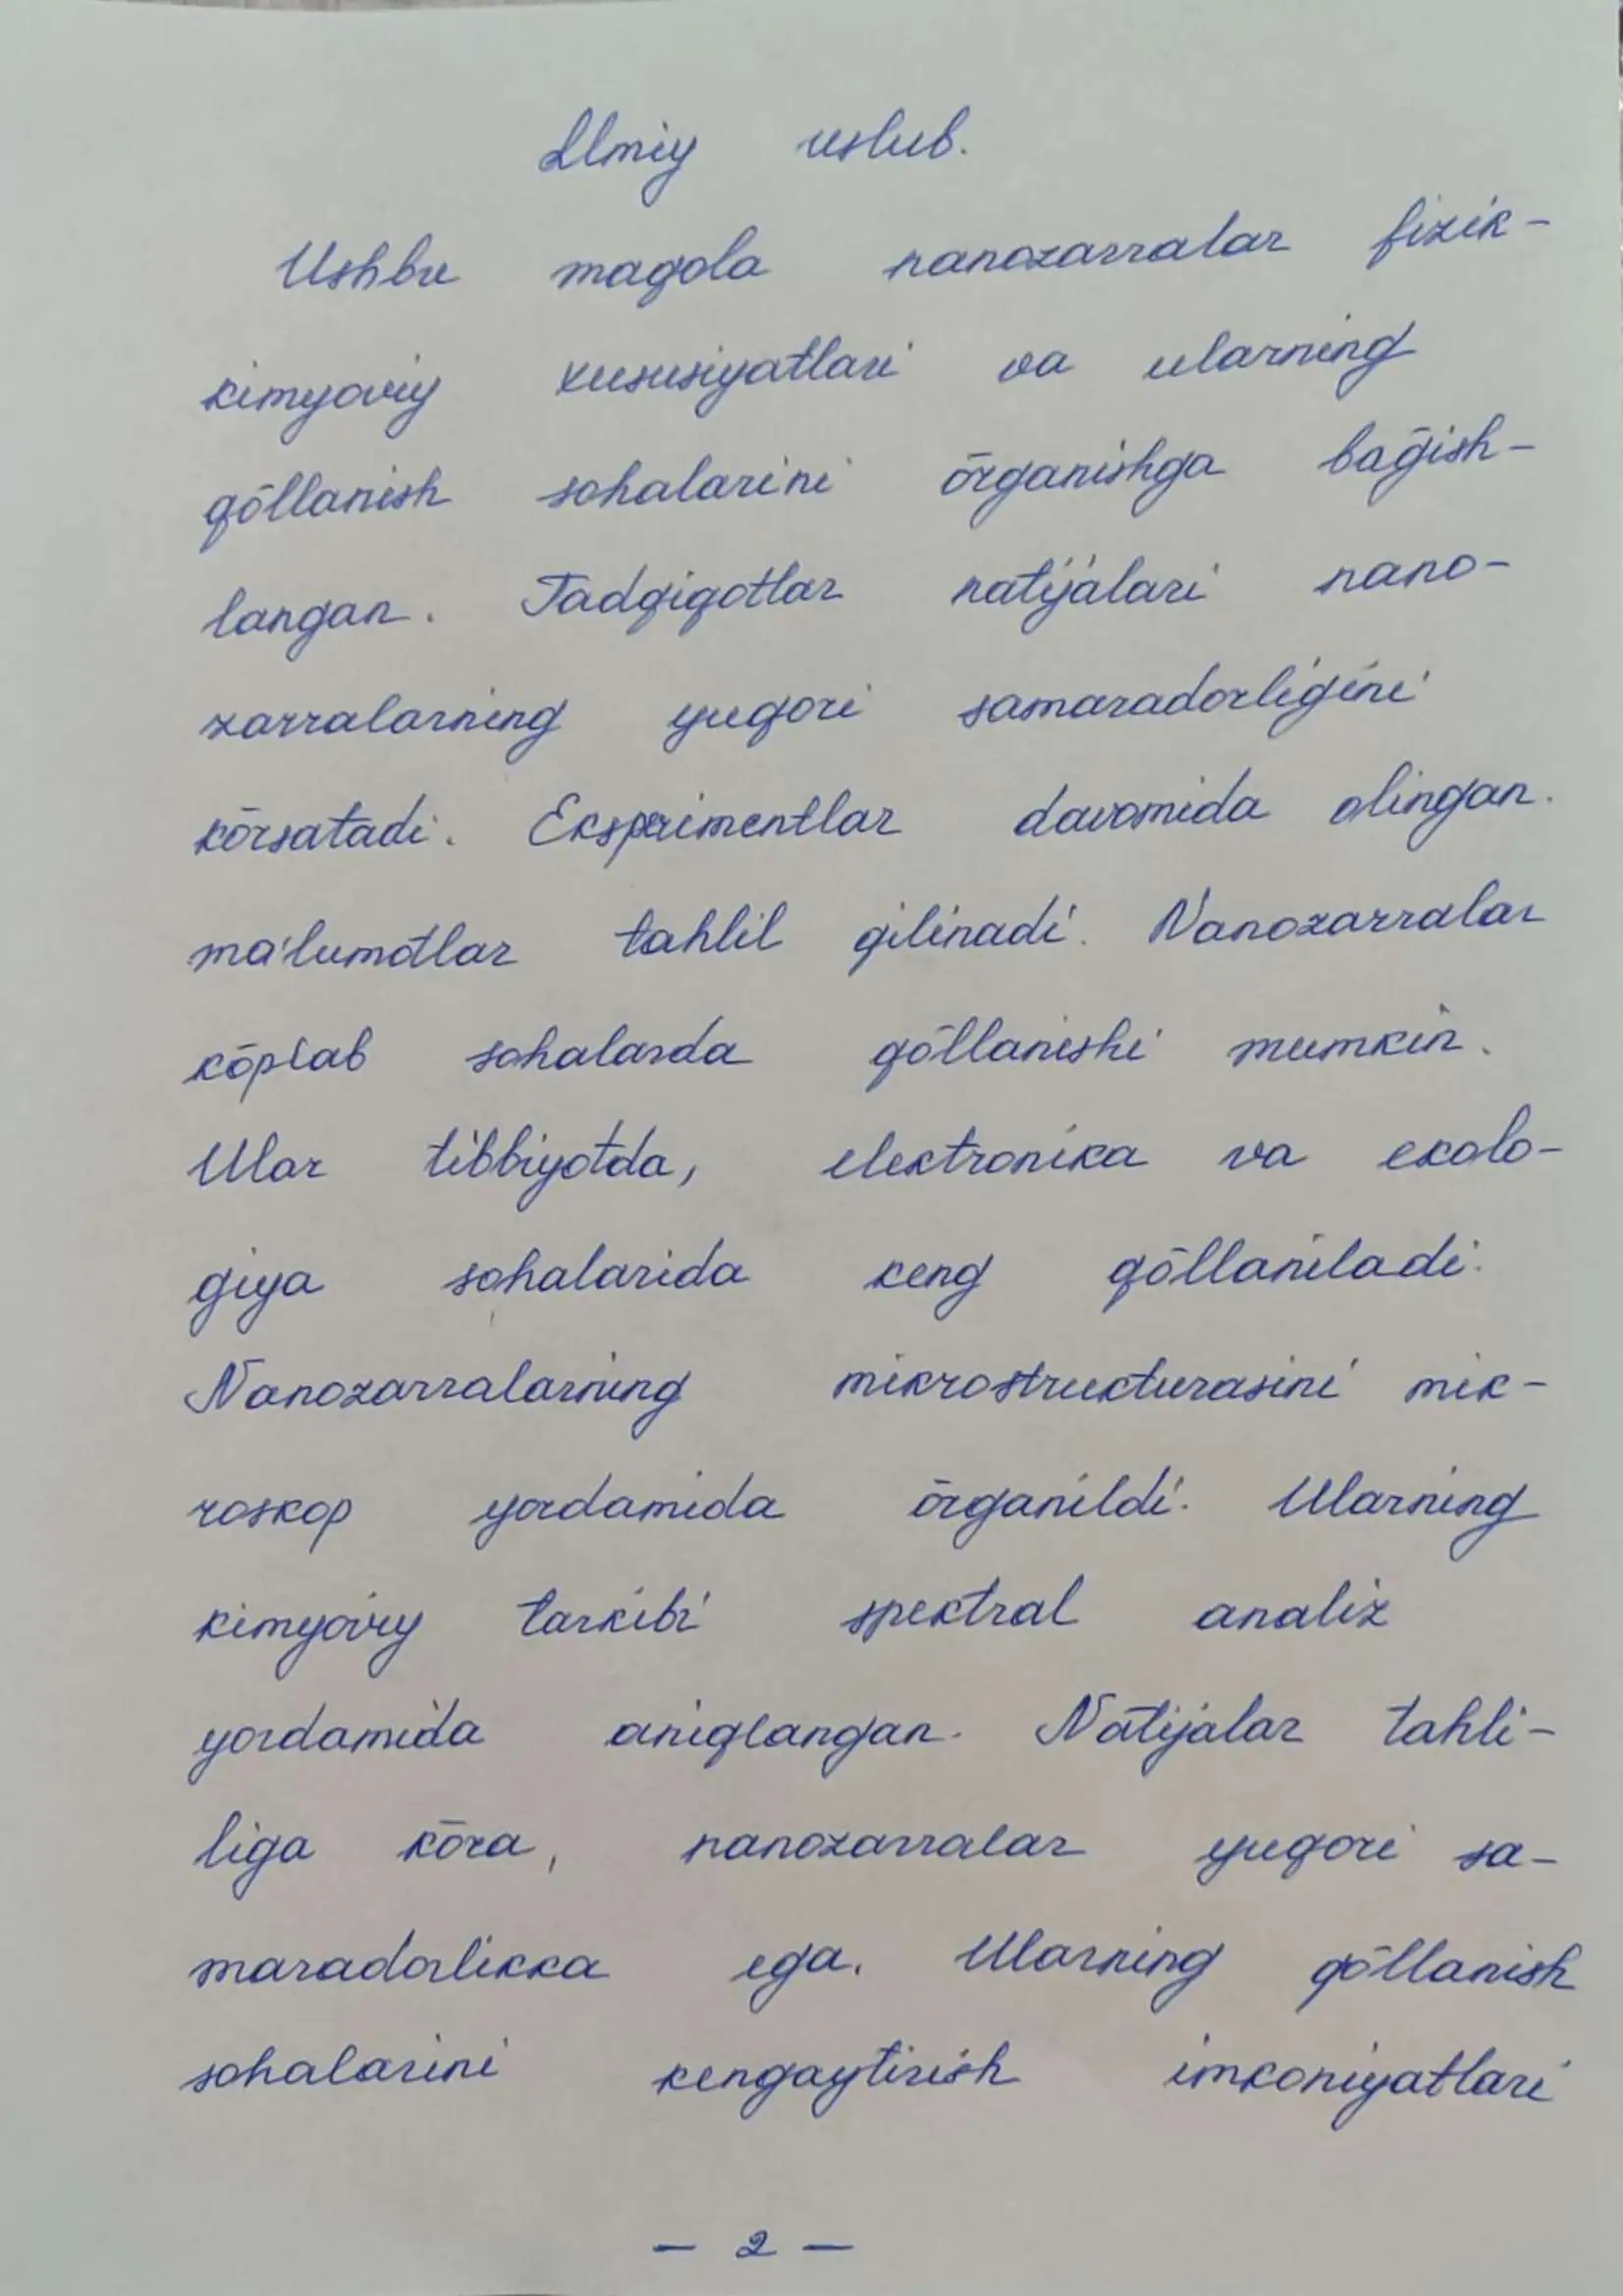 Ilmiy uslub.
Ushbu maqola nanozarralar fizik-
kimyoviy xususiyatlari va ularning
qōllanish sohalarini ōrganishga baḡish-
langan. Tadqiqotlar natijalari nano-
zarralarning yuqori samaradorligini
kōrsatadi. Eksperimentlar davomida olingan
ma'lumotlar tahlil qilinadi. Nanozarralar
kōplab sohalarda qōllanishi mumkin.
Ular tibbiyotda, elektronika va ekolo-
giya sohalarida keng qōllaniladi.
Nanozarralarning mikrostrukturasini mik-
roskop yordamida ōrganildi. Ularning
kimyoviy tarkibi spektral analiz
yordamida aniqlangan. Natijalar tahli-
liga kōra, nanozarralar yuqori sa-
maradorlikka ega. Ularning qōllanish
sohalarini kengaytirish imkoniyatlari
— 2 —